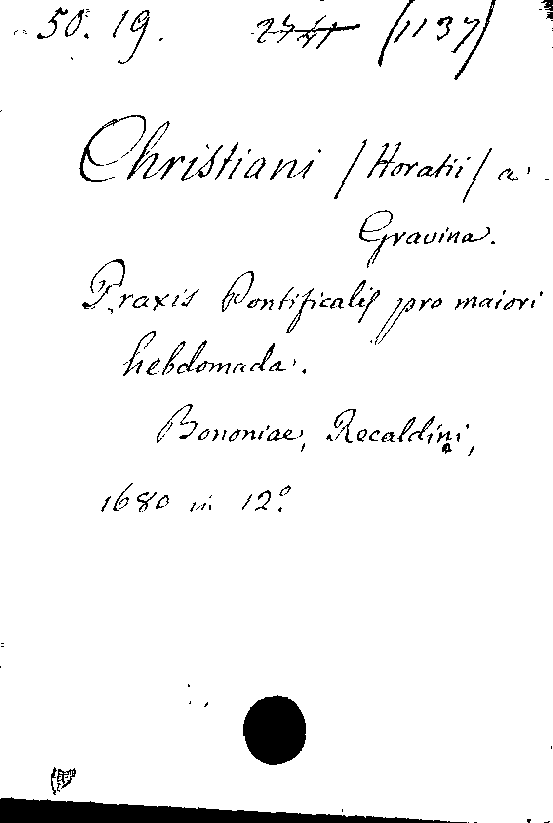 50. 19. (1137)
Christiani /Horatii/ a
Gravina.
Praxis Pontificalis pro maiori
hebdomada.
Bononiae, Recaldini,
1680 in 12.º